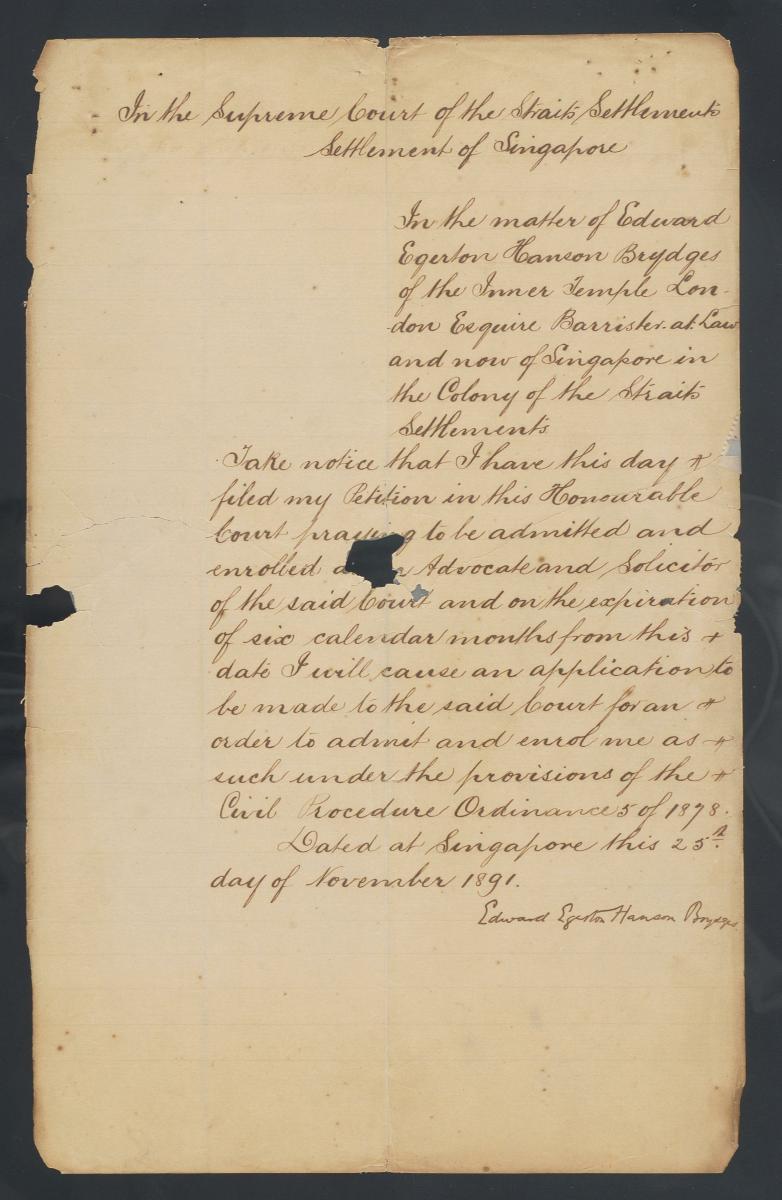 In the Supreme Court of the Straits Settlements
Settlement of Singapore
In the matter of Edward
Egerton Hanson Brydges
of the Inner Temple Lon-
don Esquire Barrister.at.Law
and now of Singapore in
the Colony of the Straits
Settlements
Take notice that I have this day
filed my Petition in this Honourable
Court praying to be admitted and
enrolled Advocate and Solicitor
of the said Court and on the expiration
of six calendar months from this
date I will cause an application to
be made to the said Court for an
order to admit and enrol me as
such under the provisions of the
Civil Procedure Ordinance 5 of 1878.
Dated at Singapore this 25th
day of November 1891.
Edward Egerton Hanson Brydges